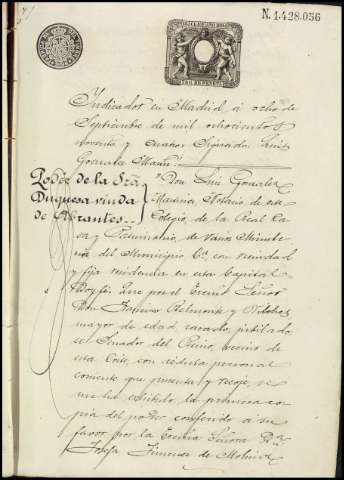 N. 1.428.056
Yndicados en Madrid, á ocho de
Septiembre de mil ochocientos
noventa y cuatro Signado. Luis
Gonzalez Martinez
Poder de la Sra.
Duquesa viuda
de Abrantes..
Don Luis Gonzalez
Martinez, Notario de este
Colegio, de la Real Ca
sa y Patrimonio, de varios Ministe
rios del Municipio &a. con vecindad
y fija residencia en esta Capital
Doy fé: Que por el Excmo Señor
Don Belmonte y Vilches
mayor de edad, casado, jubilado
ex Senador del Reino, vecino de
esta Corte, con cédula personal
corriente que presenta y recoje, se
me ha exhibido la primera co
pia del poder conferido á su
favor por la Excma Señora Da.
Josefa Jimenez de Molina